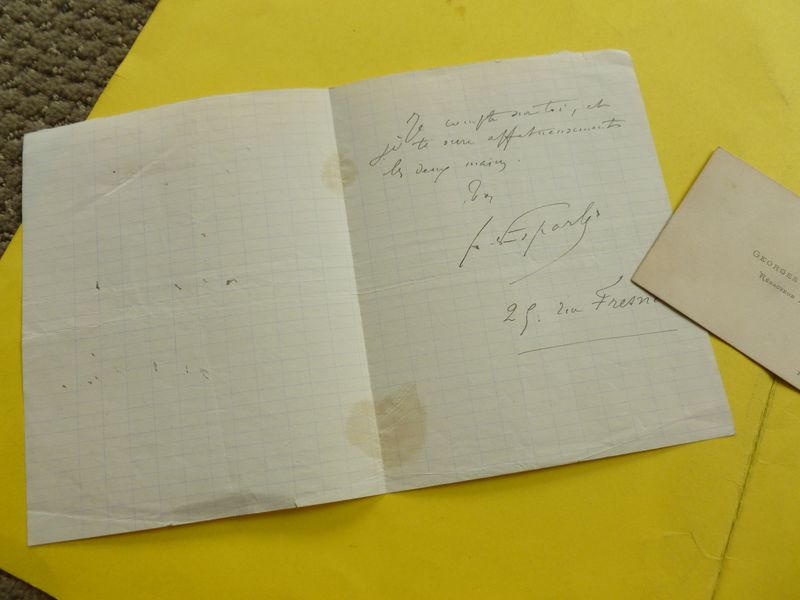 Je compte sur toi, et
je te serre affectueusement
les deux mains.
25. rue Fresn
GEORGES
Rédacteur